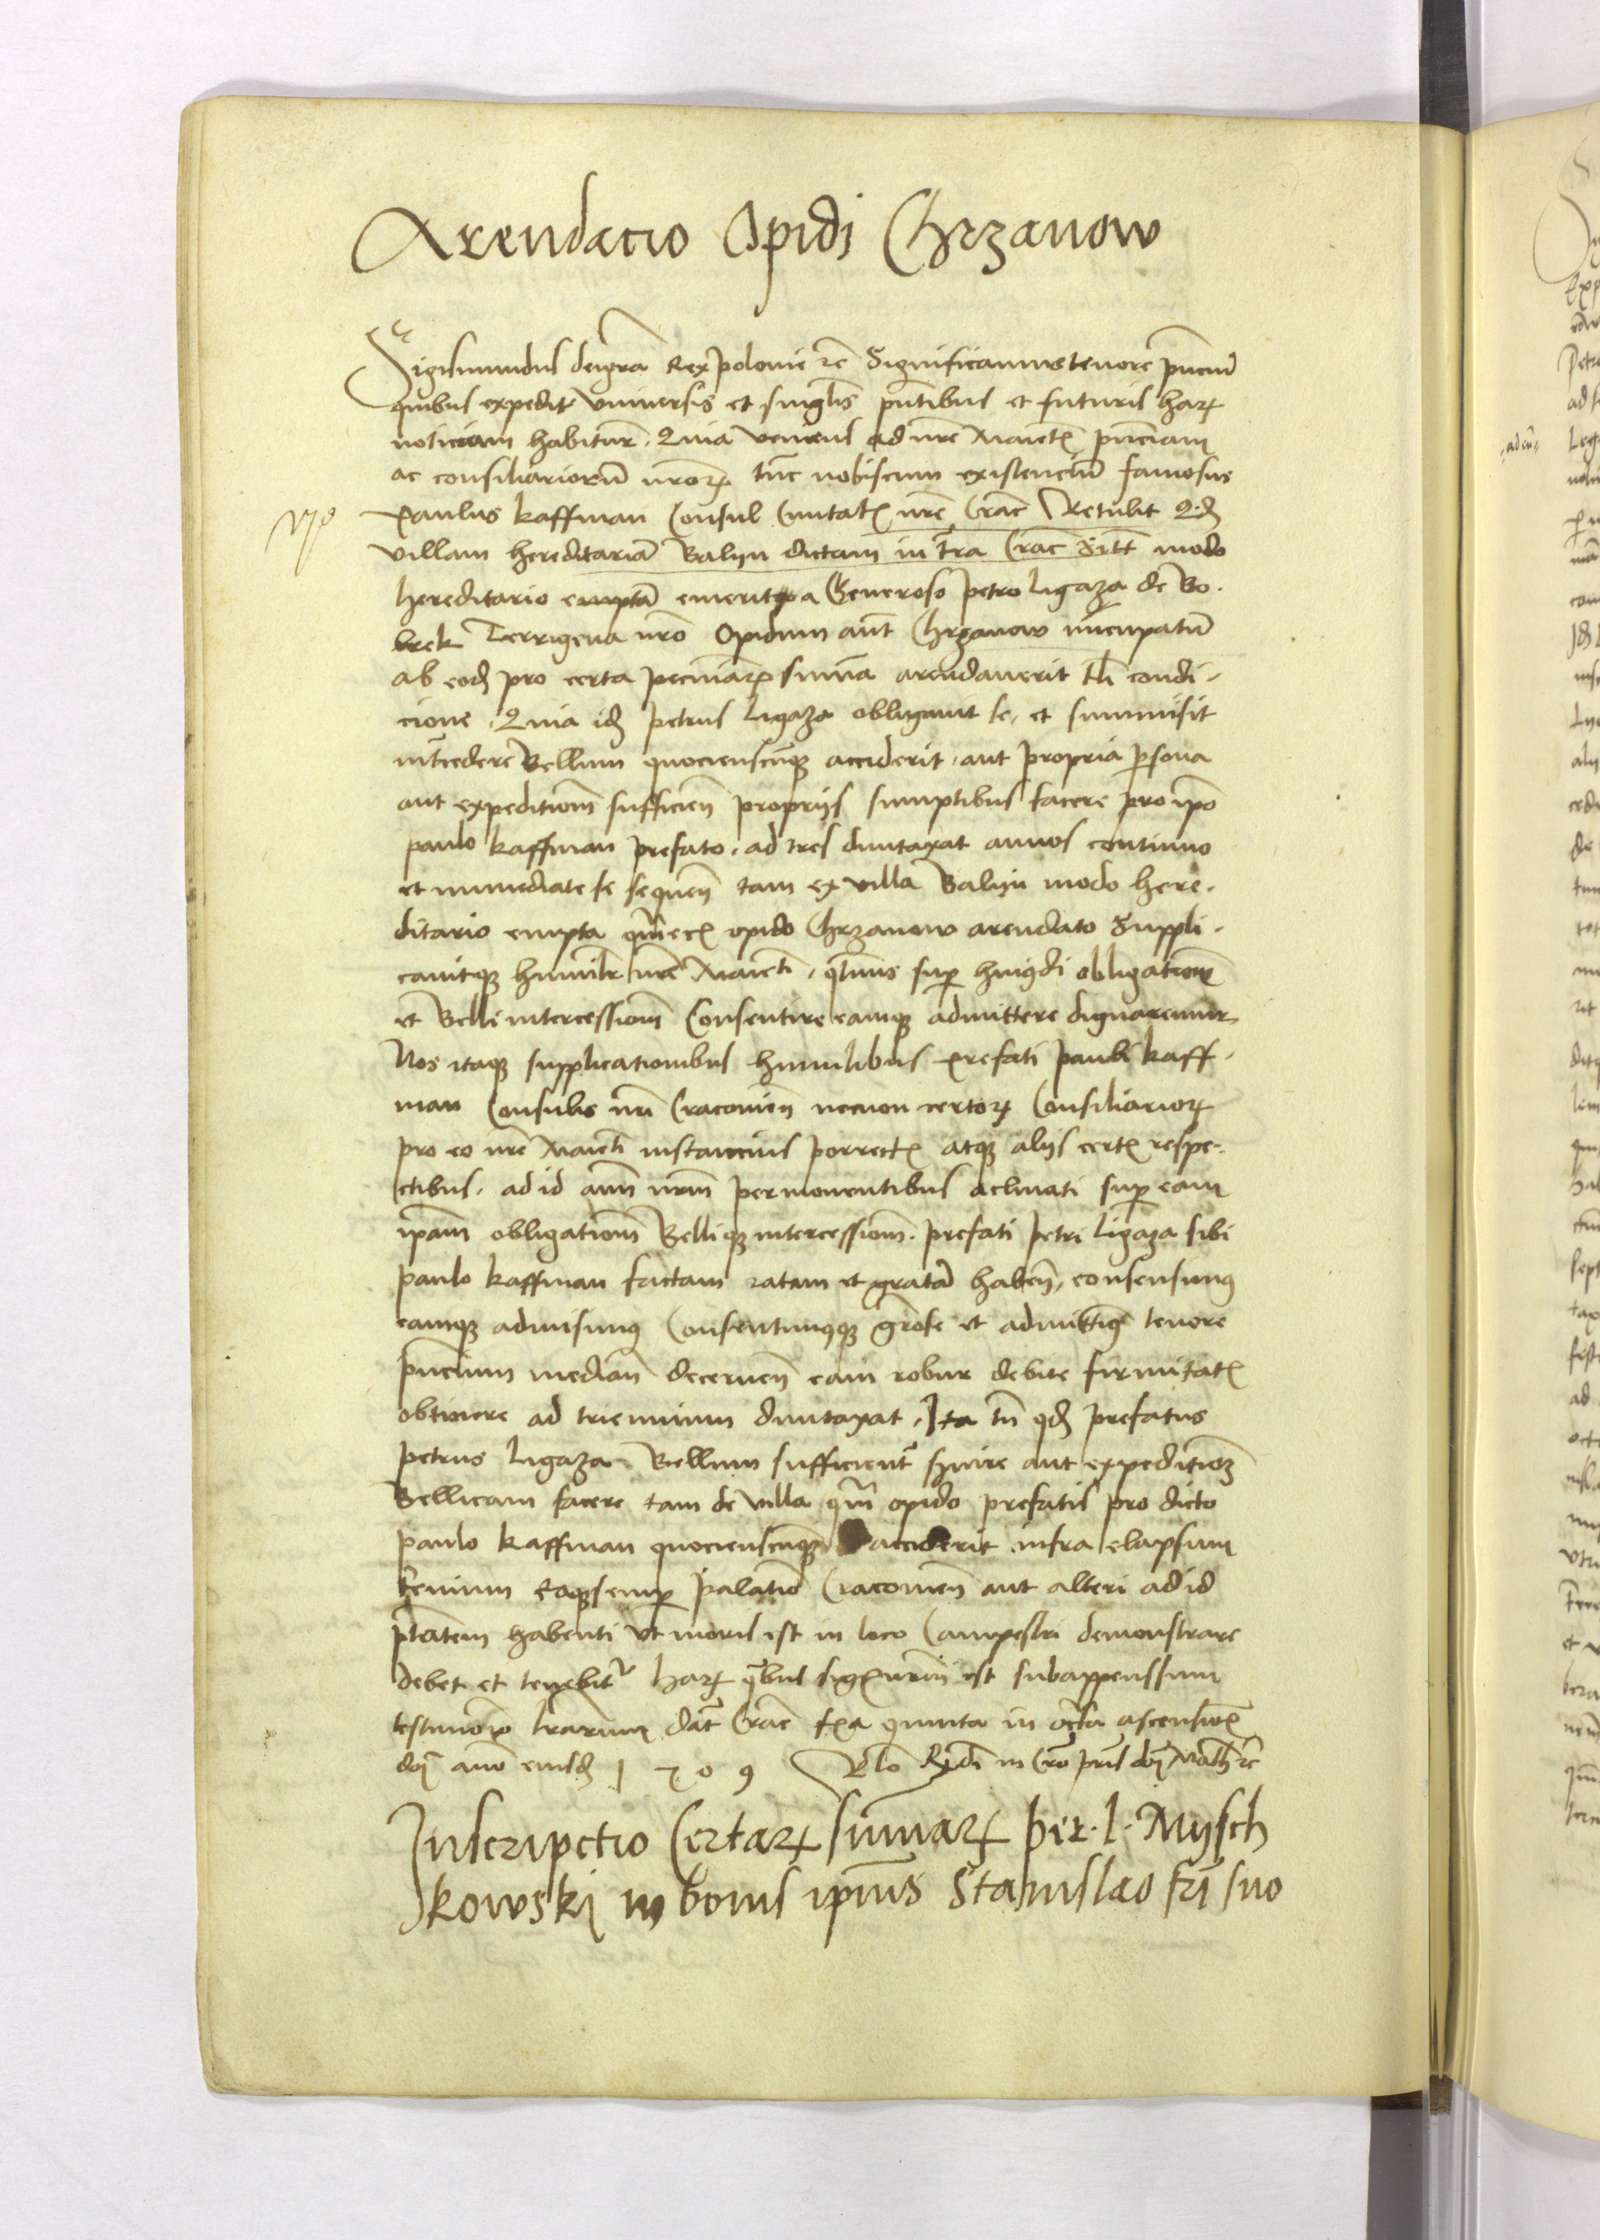 Arendacio Opidi Chrzanow
Sigismundus dei gra Rex polonie rc Significamus tenore pntium
quibus expedit vniuersis et singlis pntibus et futuris harꝫ
noticiam habitur. Quia veniens ad nre Maiestꝭ pnciam
ac consiliariorū nrorꝫ tūc nobiscum existenciū famosus
Paulus kaffman Consul Ciuitatꝭ nre Crac Retulit Q.d
villam hereditariā Balijn dictam in tra Crac Sitt modo
hereditario emptā emerit a Generoso petro Ligaza de Bo.
brek Terrigena nro Opidum aūt Chrzanow nūcupatū
ab eodē pro certa pecuniarꝫ sūma arendauerit tli condi-
cione. Quia idē petrus Ligaza obligauit se, et summisit
intcedere Bellum quocienscūqꝫ acciderit, aut propria psona
aut expeditionē sufficien proprijs sumptibus facere pro ipo
paulo kaffman prefato. ad tres duntaxat annos continuo
et immediate se sequen tam ex villa Balijn modo here-
ditario empta qm ecꝭ opido Chrzanow arendato Suppli-
cauitqꝫ humilr nre Maiesti. qtinus sup huiꝰdi obligationē
et Belli intercessionē Consentire eamqꝫ admittere dignaremur
Nos itaqꝫ supplicationibus humilibus Prefati pauli kaff-
man Consulis nri Cracouien necnon certorꝫ Consiliariorꝫ
pro eo nre Maiesti instancius porrectꝭ atqꝫ alijs certꝭ respe-
ctibus. ad id anm nrm permouentibus aclinati sup eam
ipam obligationē Belliqꝫ intercessionē. prefati petri Ligaza sibi
paulo kaffman factam ratam et gratā haben, consensimꝰ
eamqꝫ admisimꝰ Consentimꝰqꝫ grose et admittimꝰ tenore
pntium median decernen eam robur debite firmitatꝭ
obtinere ad triennium duntaxat. Ita tn qd prefatus
petrus Ligaza Bellum sufficient suire aut expeditionē
Bellicam facere tam de villa qm opido prefatis pro dicto
paulo kaffman quocienscūqꝫ acciderit infra elapsum
trenium Eaqꝫ semp palatino Cracouien aut alteri ad id
ptatem habenti vt moris est in loco Campestri demonstrare
debet et tenebitr harꝫ qbus sigꝭ nrm est subappenssum
testimonio lrarum Dat Crac fꝭa quinta in octa ascensionꝭ
dnj anno eiusd 1509 Rlo Rndi in Cro pris dnj Math rc
Inscripctio Certarꝫ sūmarꝫ per. l. Mijsch
kowskj in bonis ipius Stanislao fri suo